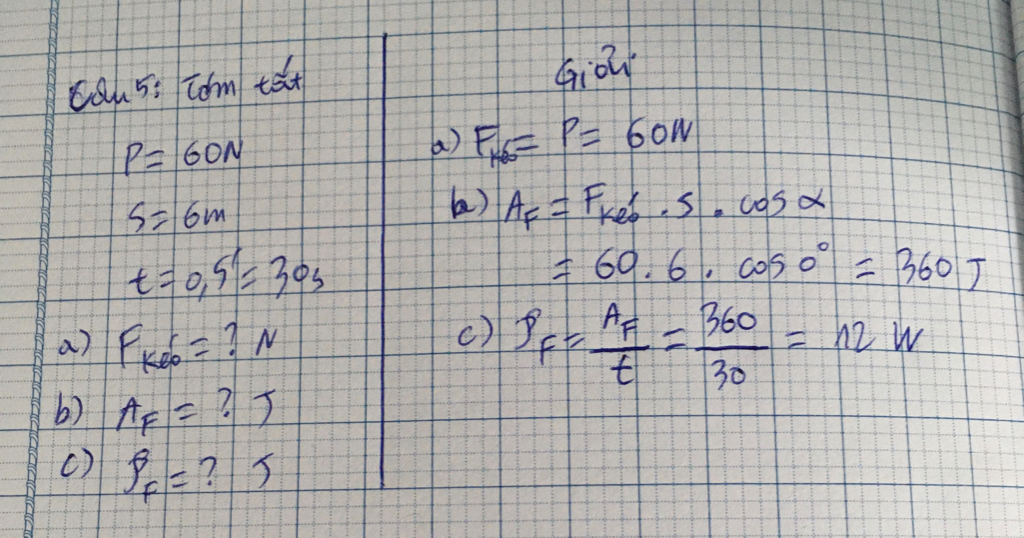 Câu 5: Tóm tắt
P = 60N
S = 6m
t = 0,5' = 30s
a) Fkéo = ? N
b) AF = ? J
c) 𝒫F = ? J
Giải
a) Fkéo = P = 60N
b) AF = Fkéo . S . cos α
= 60 . 6 . cos 0° = 360 J
c) 𝒫F = AF/t = 360/30 = 12 W